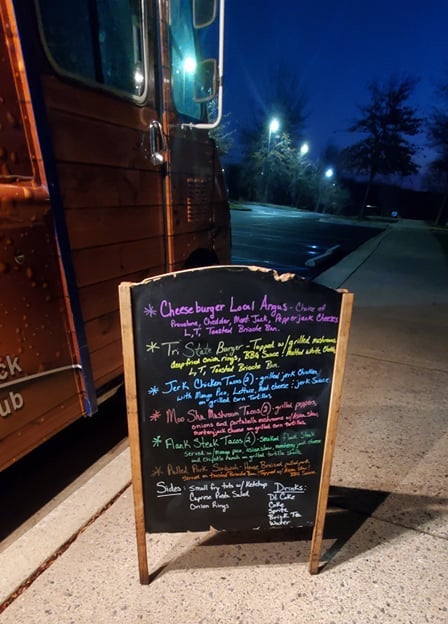 ck
ub
* Cheeseburger Local Angus - Choice of
Provolone, Cheddar, Mont. Jack, Pepperjack Cheeses
L,T, Toasted Brioche Bun.
* Tri State Burger - Topped w/ grilled mushrooms
deep-fried onion rings, BBQ Sauce, Melted White Chedd.
L,T, Toasted Brioche Bun.
* Jerk Chicken Tacos (2) - grilled jerk Chicken
with Mango Pico, Lettuce, and cheese; jerk Sauce
on grilled corn Tortillas
* Moo Shu Mushroom Tacos (2) - grilled peppers,
onions and portabella mushrooms w/ Asian slaw,
jack cheese on grilled corn tortillas
* Flank Steak Tacos (2) - Smoked Flank Steak
Served w/ mango pico, asian slaw, jack cheese
and Chipotle Ranch on grilled tortilla shells
* Pulled Pork Sandwich - House Braised
Served on toasted Brioche Bun Topped w/
Sides: small fry tots w/ Ketchup
Caprese Pasta Salad
Onion Rings
Drinks:
Di Coke
Coke
Sprite
Brisk Tea
Water